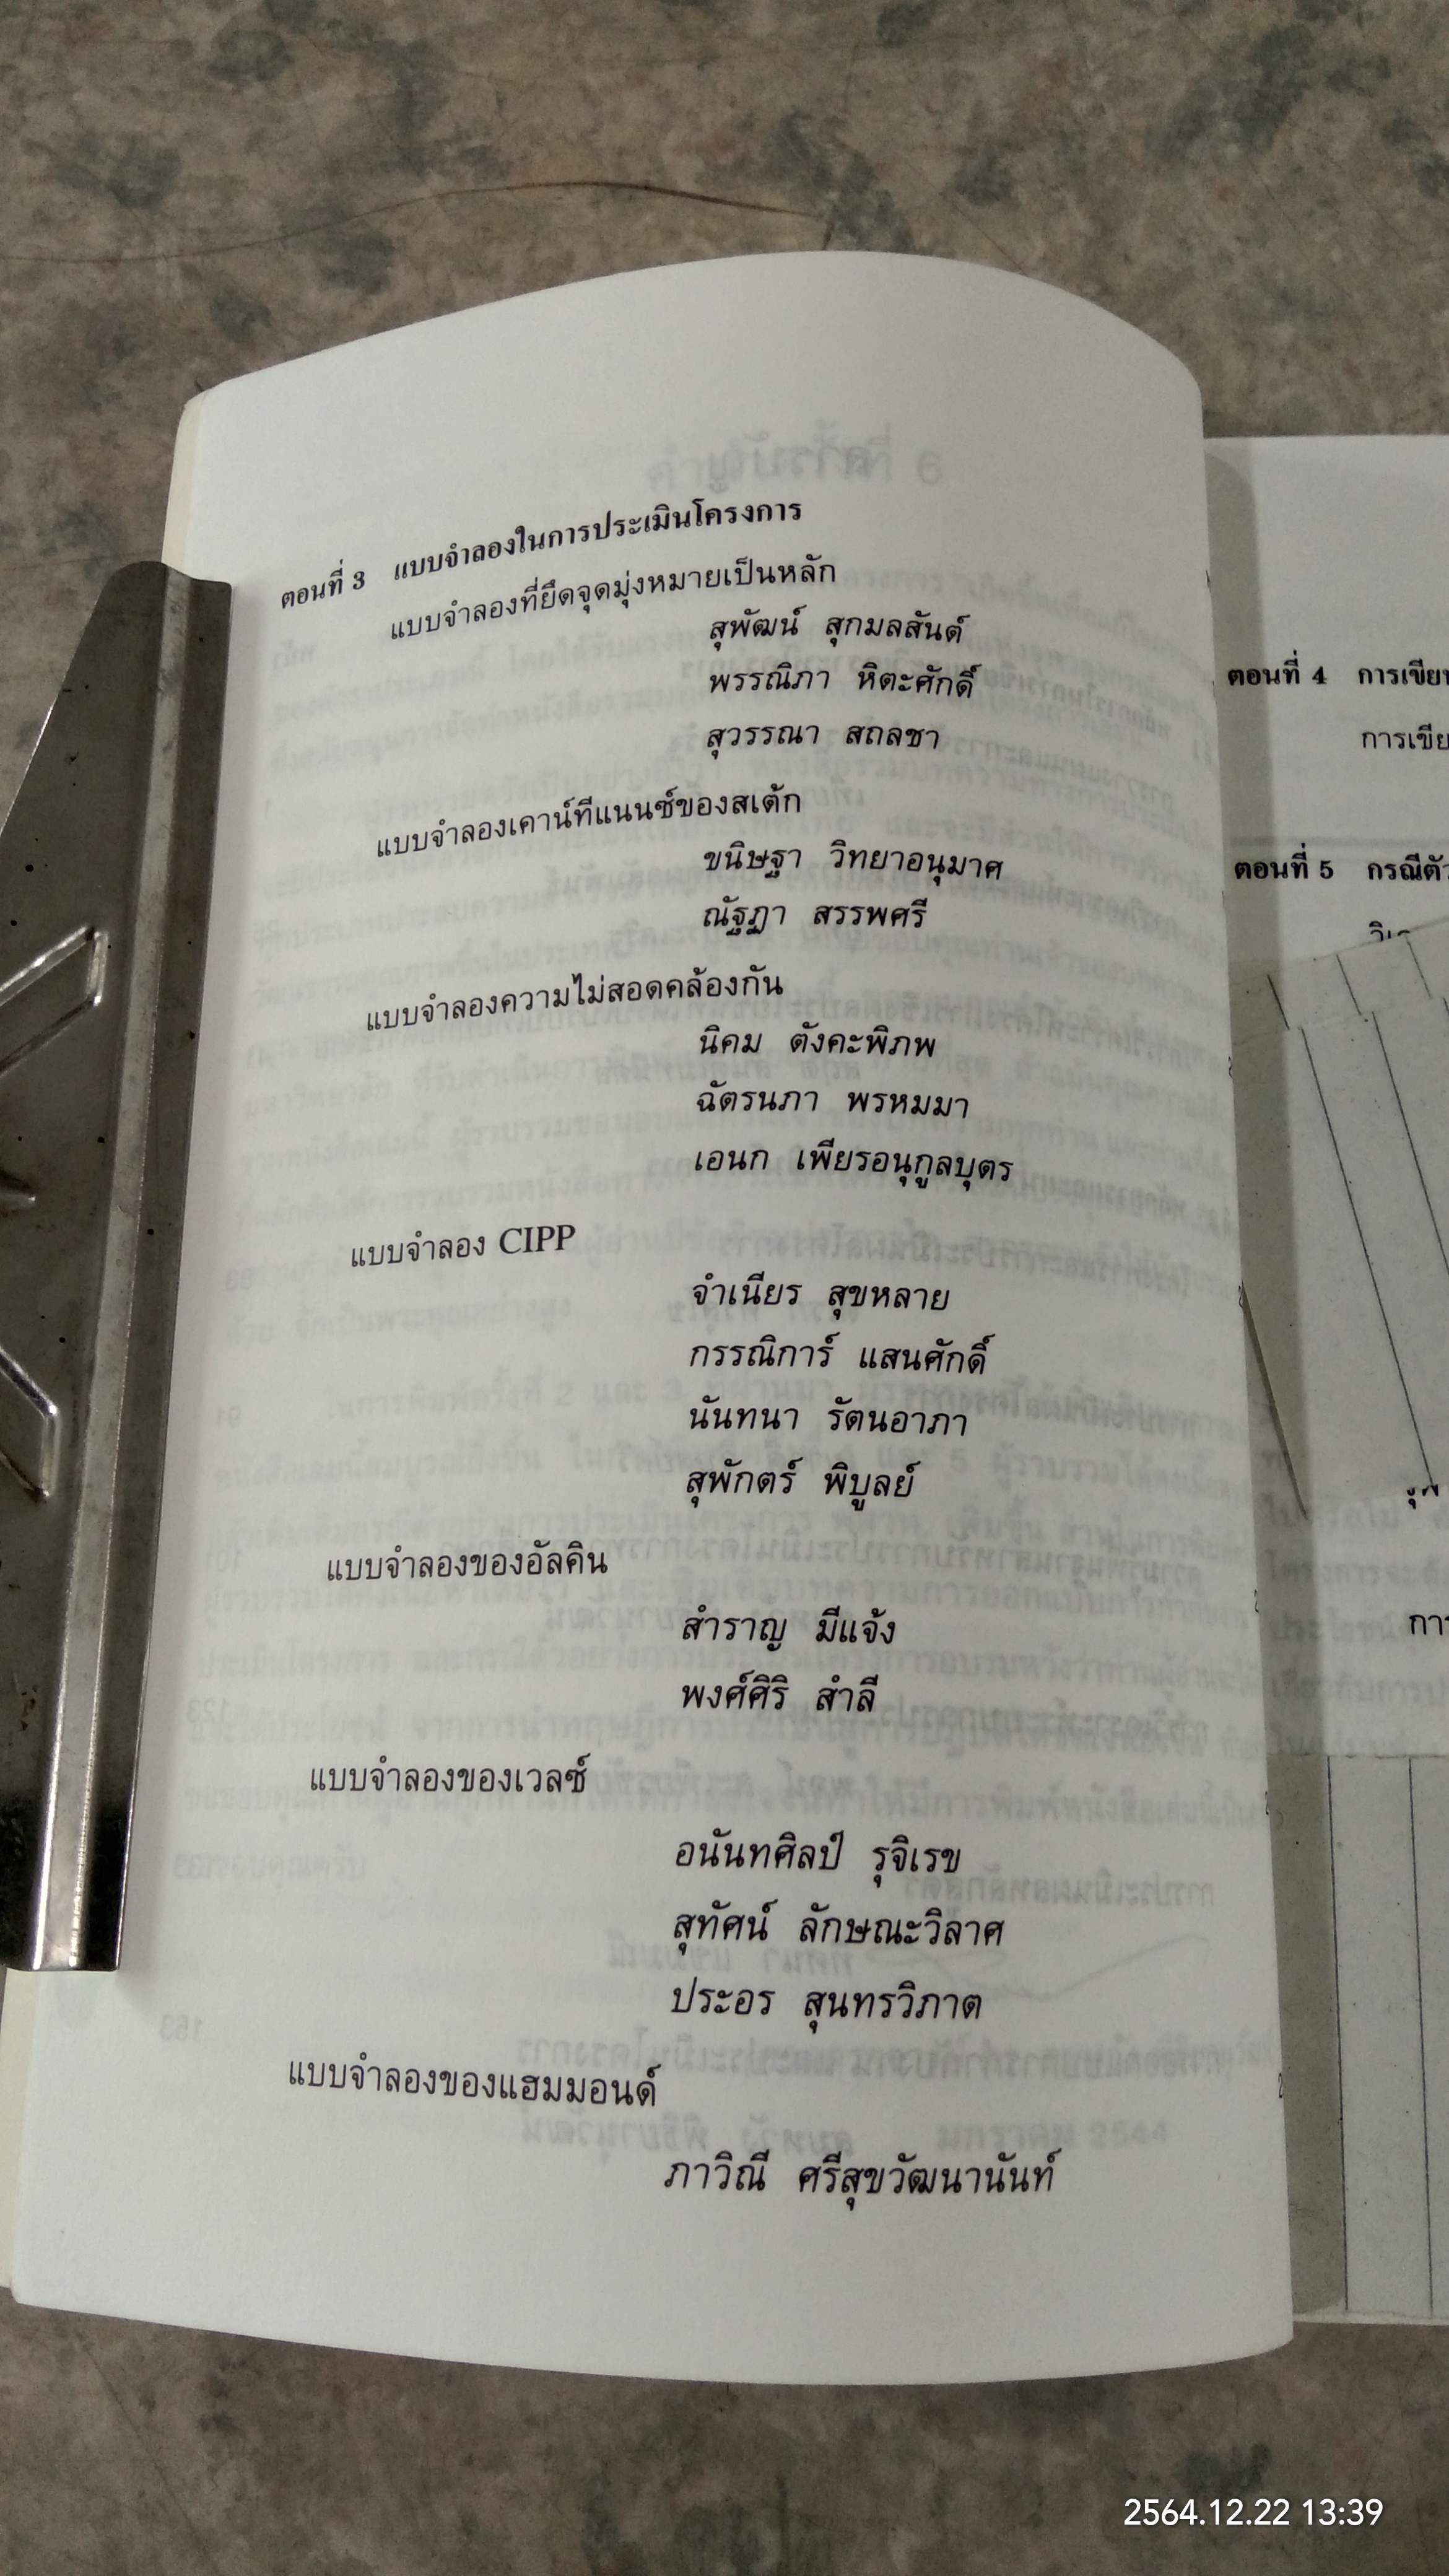 ตอนที่ 3 แบบจำลองในการประเมินโครงการ
แบบจำลองที่ยึดจุดมุ่งหมายเป็นหลัก
สุพัฒน์ สุกมลสันต์
พรรณิภา หิตะศักดิ์
สุวรรณา สถลชา
แบบจำลองเคาน์ทีแนนซ์ของสเต้ก
ขนิษฐา วิทยาอนุมาศ
ณัฐฏา สรรพศรี
แบบจำลองความไม่สอดคล้องกัน
นิคม ตังคะพิภพ
ฉัตรนภา พรหมมา
เอนก เพียรอนุกูลบุตร
แบบจำลอง CIPP
จำเนียร สุขหลาย
กรรณิการ์ แสนศักดิ์
นันทนา รัตนอาภา
สุพักตร์ พิบูลย์
แบบจำลองของอัลคิน
สำราญ มีแจ้ง
พงศ์ศิริ สำลี
แบบจำลองของเวลซ์
อนันทศิลป์ รุจิเรข
สุทัศน์ ลักษณะวิลาศ
ประอร สุนทรวิภาต
แบบจำลองของแฮมมอนด์
ภาวิณี ศรีสุขวัฒนานันท์
ตอนที่ 4 การเขีย
การเขีย
ตอนที่ 5 กรณีตัว
การ
2564.12.22 13:39